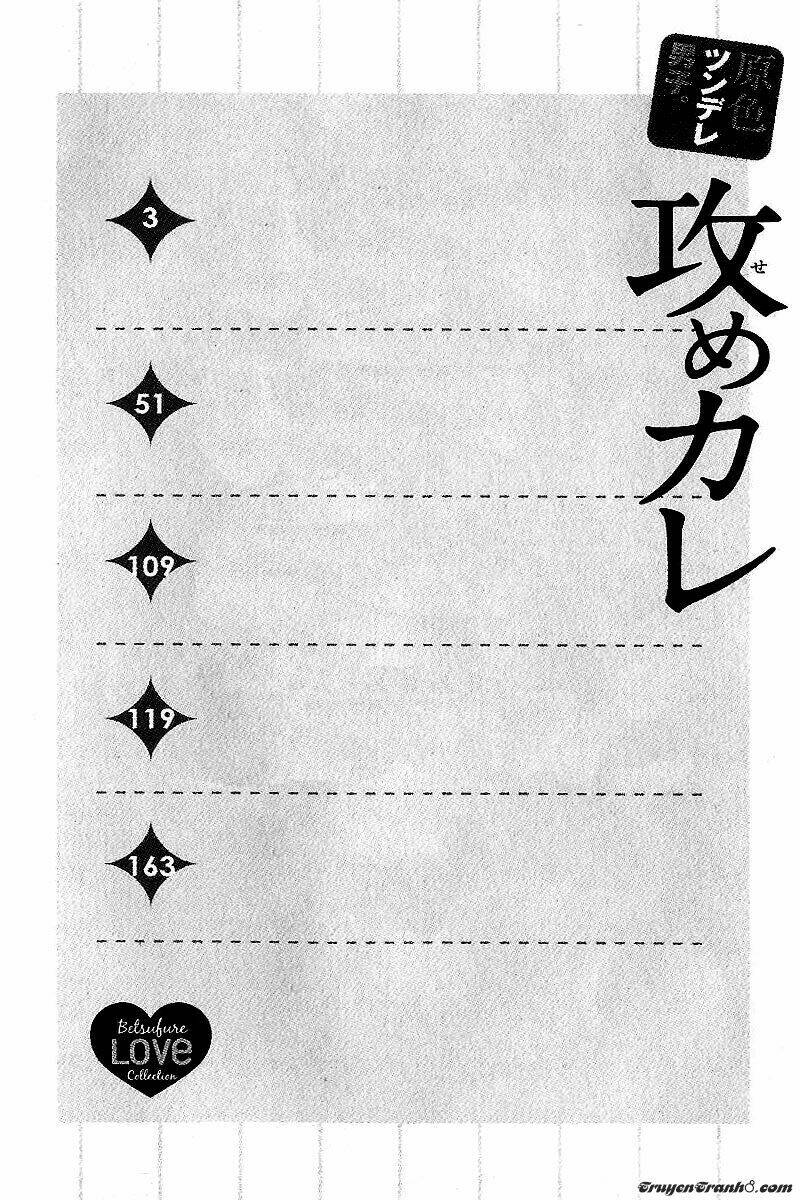 原色
ツンデレ
男子。
攻めカレ
せ
3
51
109
119
163
Betsufure
LOVE
Collection
TruyenTranh8.com